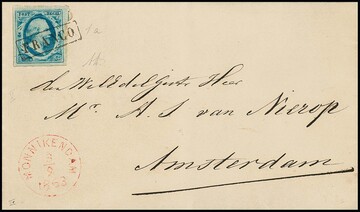 POST ZEGEL
FRANCO
1a
den WelEdelGestr Heer
Mr. A. S van Nierop
Amsterdam
MONNIKENDAM
8
9
1853